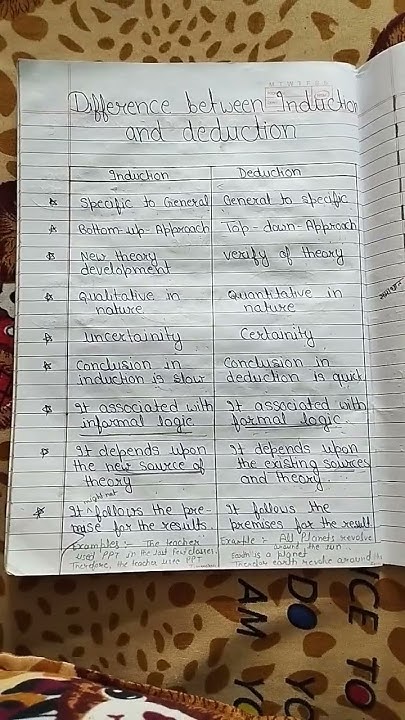 M T W T F S S
Difference between Induction
and deduction
Induction
Deduction
Specific to General
General to specific
Bottom-up-Approach
Top-down-Approach
New theory
development
verify of theory
Qualitative in
nature
Quantitative in
nature
uncertainity
Certainity
Conclusion in
induction is slow
Conclusion in
deduction is quick
It associated with
informal logic
It associated with
formal logic.
It depends upon
the new source of
theory
It depends upon
the existing sources
and theory.
might not
It ^ follows the pre-
mise for the results.
It follows the
premises for the result
Examples:- The teacher
used PPT in the last few classes.
Therefore, the teacher uses PPT
Example:- All Planets revolve
around the sun.
Earth is a planet
Therefore earth revolve around the
NCE TO
DO YO
AM YO